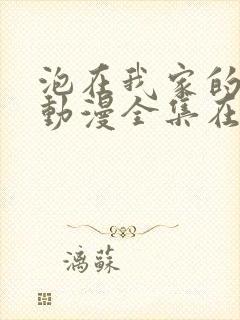 泡在我家的
動漫全集在
漓蘇